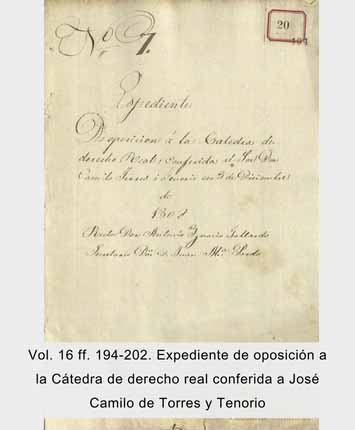 Nº 7.
20
Expediente
De oposicion á la Catedra de
derecho Real, conferida al Sor. Don
Camilo Torres i Tenorio en 3 de Diciembre
de
1808
Rector Don Antonio Ignacio Gallardo
Dn. Juan Pardo
Vol. 16 ff. 194-202. Expediente de oposición a
la Cátedra de derecho real conferida a José
Camilo de Torres y Tenorio